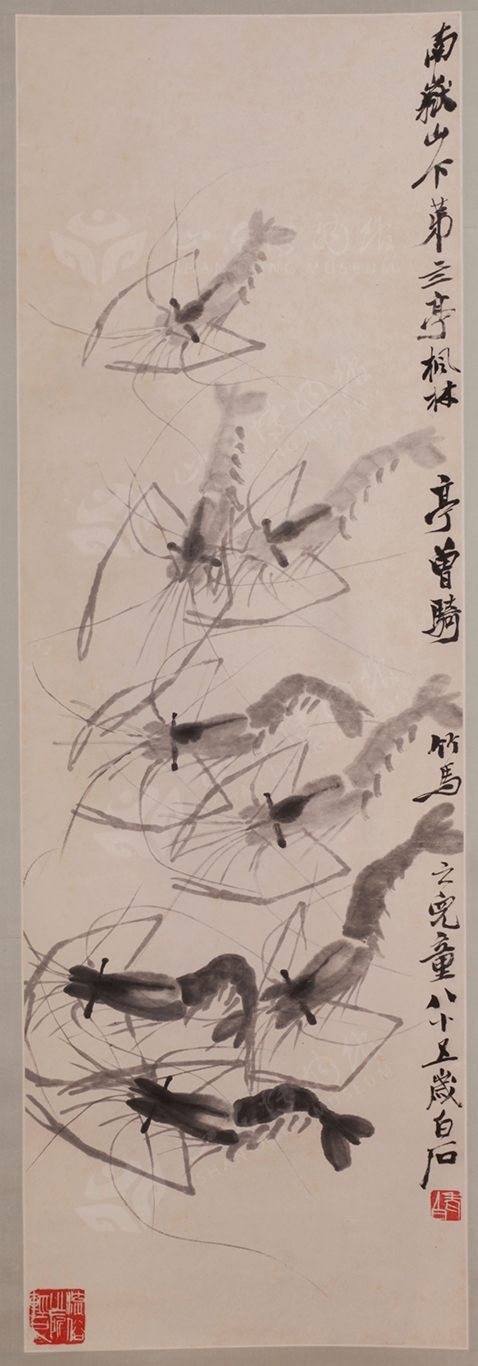 南嶽山下第三亭楓林亭曾騎竹馬之兒童八十五歲白石